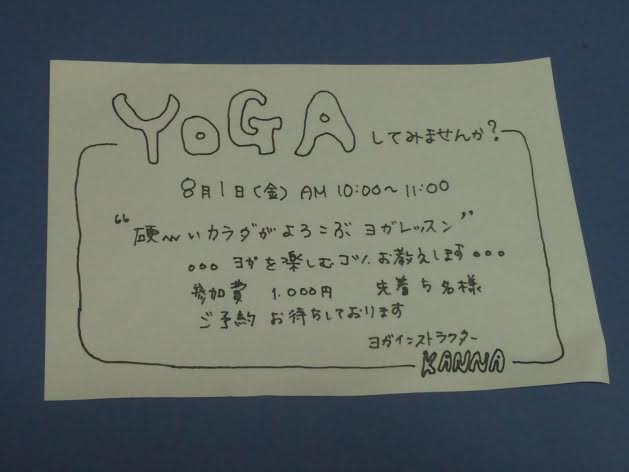 YOGAしてみませんか?
8月1日(金) AM 10:00〜11:00
“硬〜いカラダがよろこぶ ヨガレッスン”
... ヨガを楽しむコツ、お教えします...
参加費 1.000円 先着5名様
ご予約 お待ちしております
ヨガインストラクター
KANNA